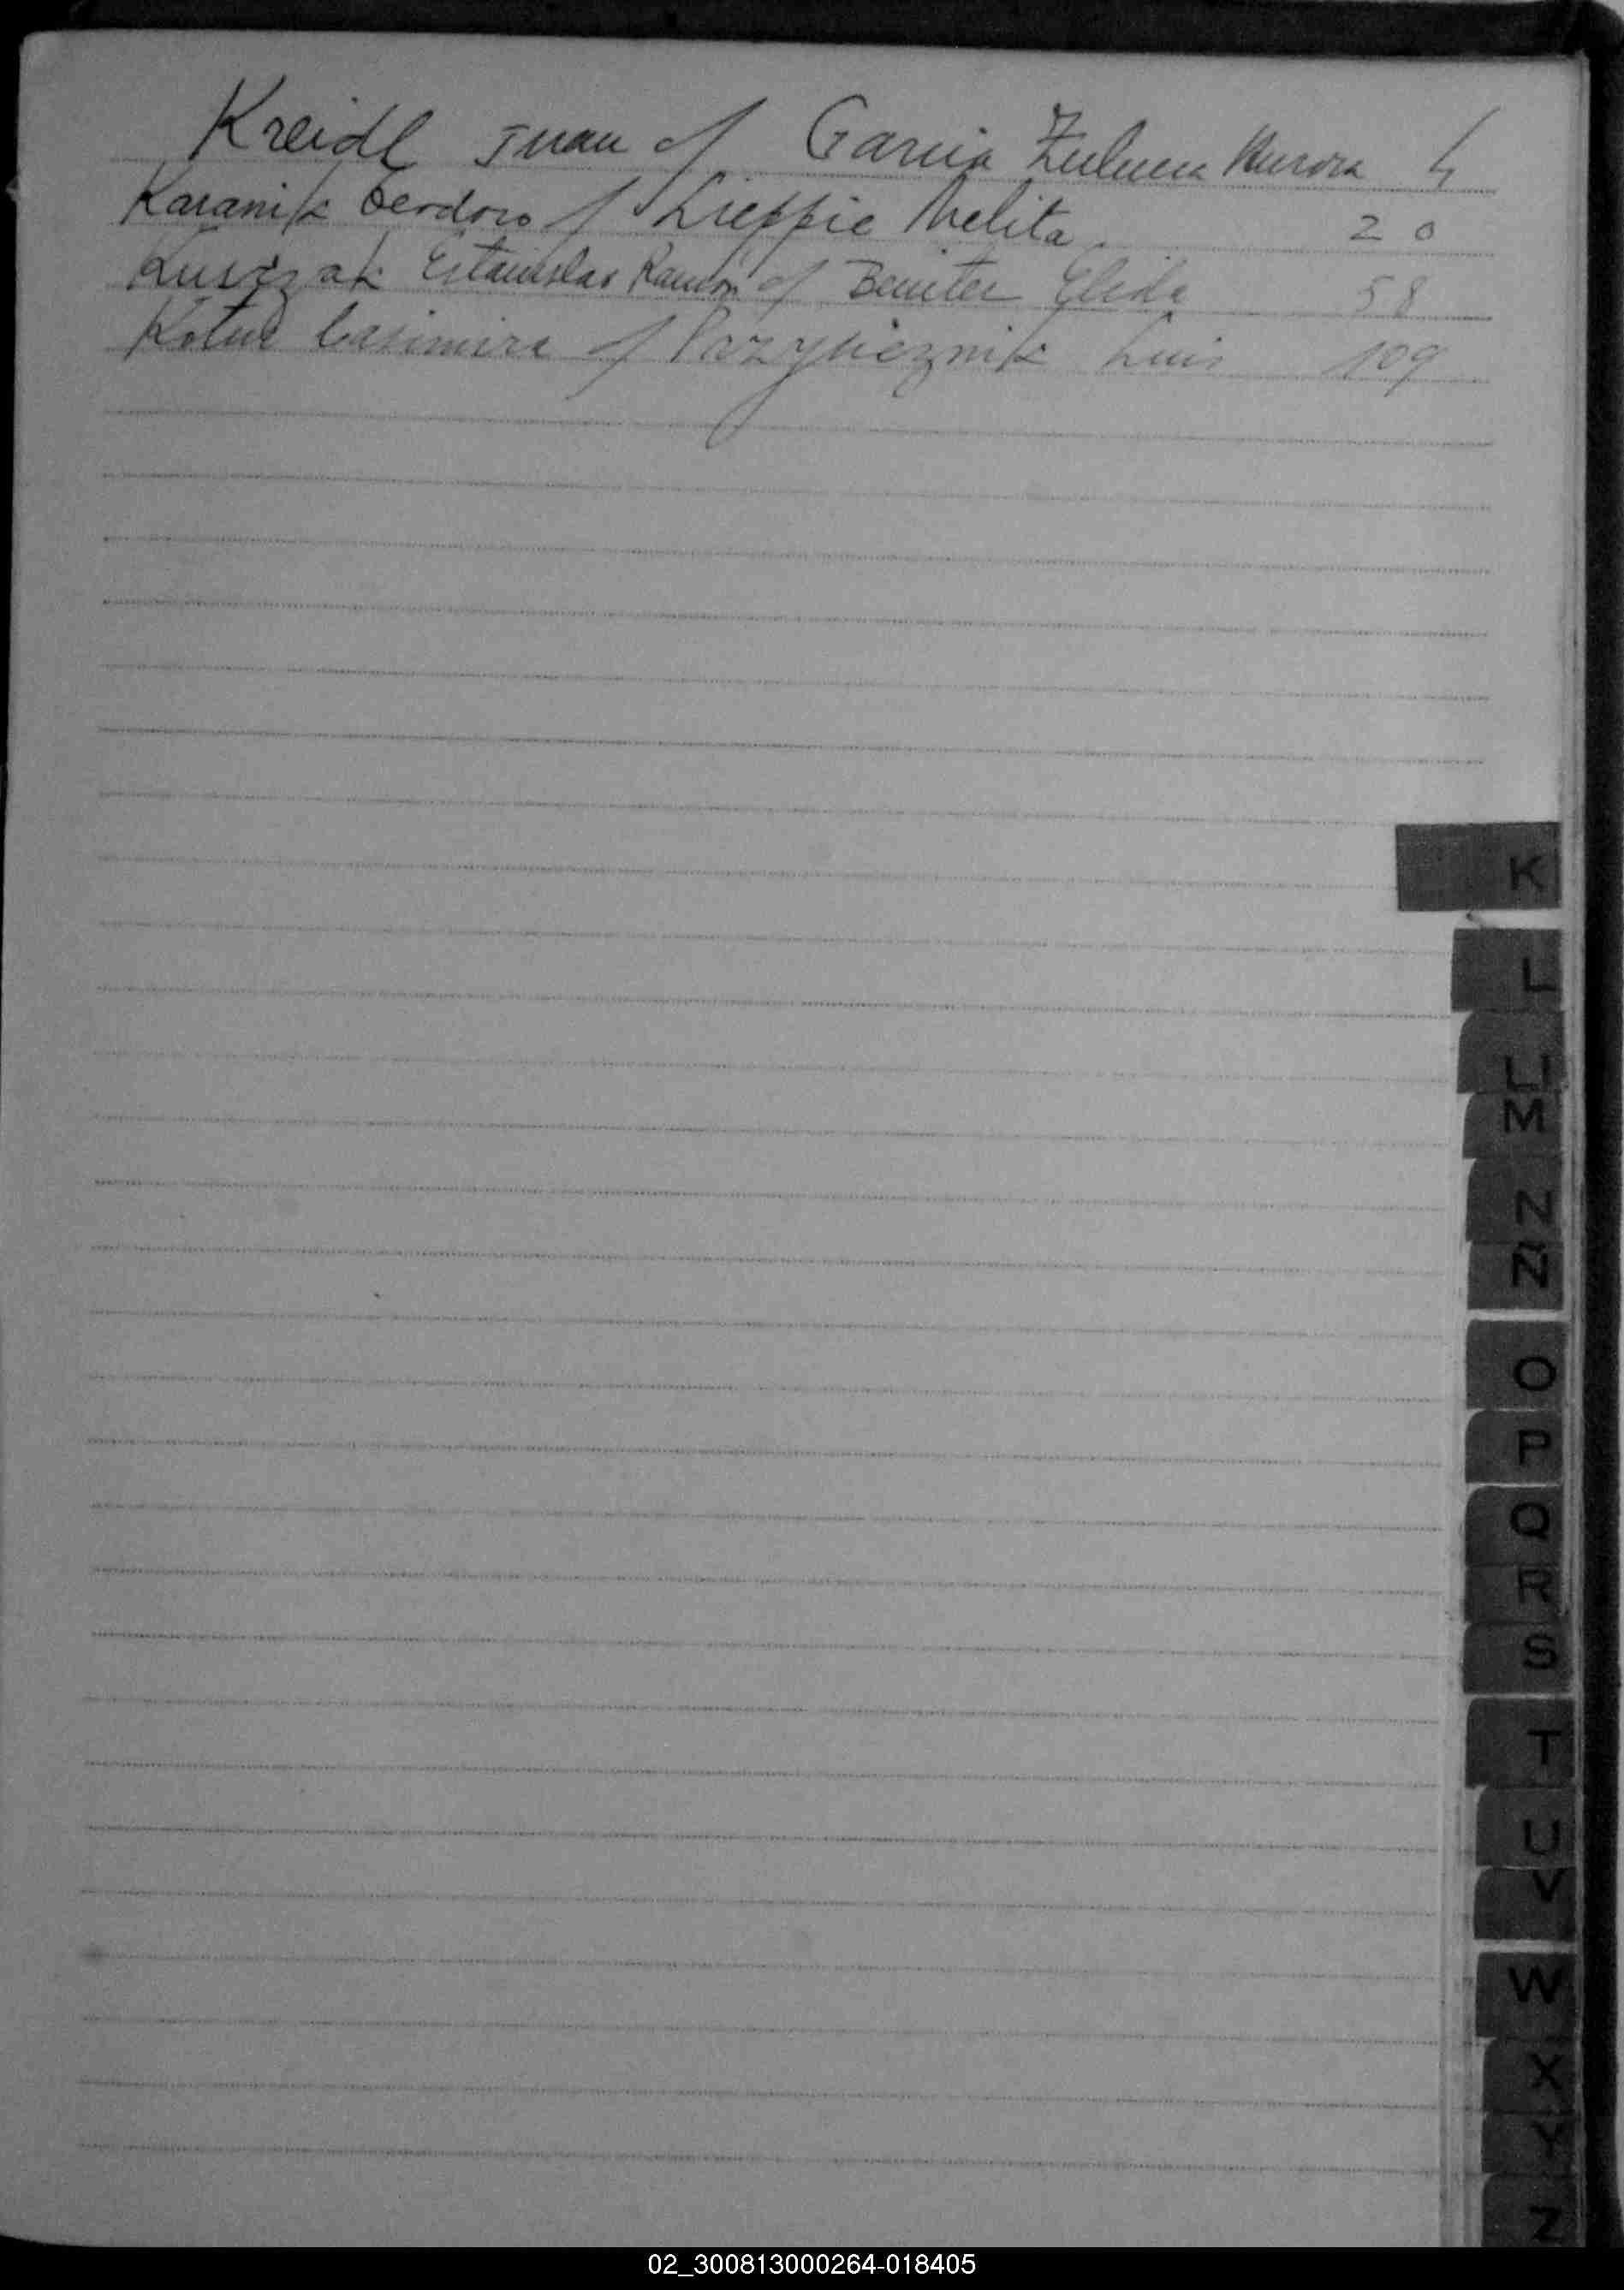 Kreidl Juan c/ Garcia Zulema Aurora 4
Karanik Teodoro c/ Melita 20
Estanislao Ramón c/ Benitez Elida 58
Casimira c/ Luis 109
K
L
LL
M
N
Ñ
O
P
Q
R
S
T
U
V
W
X
Y
Z
02_300813000264-018405